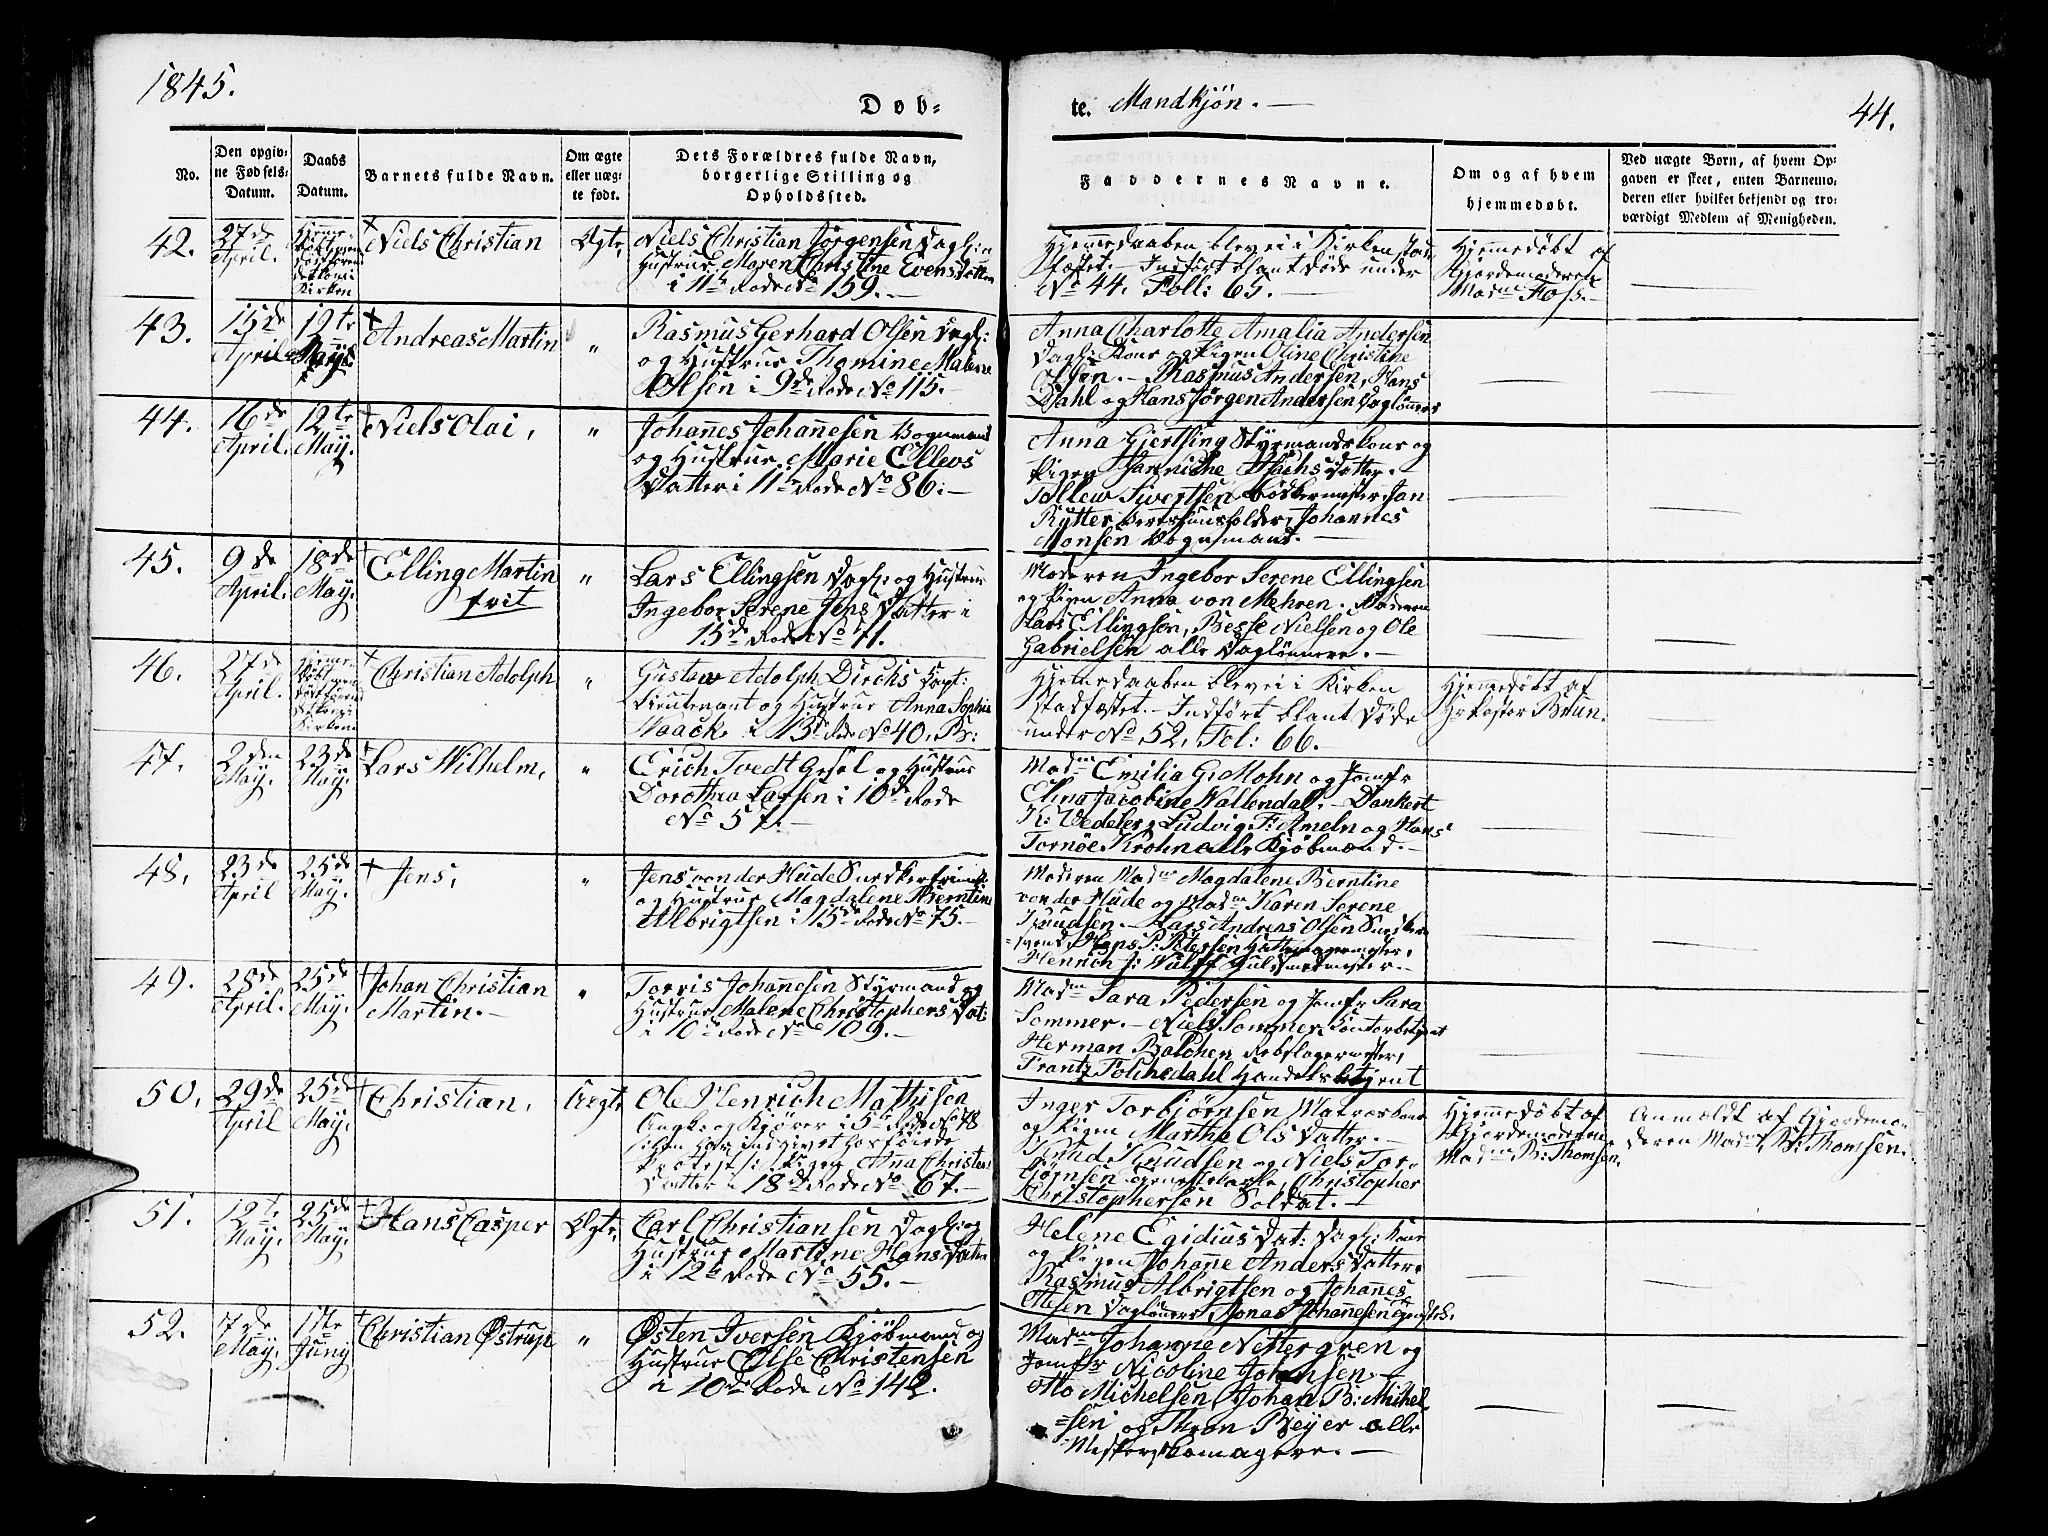 1845.
Døb-
te. Mandkjøn. —
44.
No.
Den opgiv-
ne Fødsels-
Datum.
Daabs
Datum.
Barnets fulde Navn.
Om ægte
eller uæg-
te født.
Dets Forældres fulde Navn,
borgerlige Stilling og
Opholdssted.
Faddernes Navne.
Om og af hvem
hjemmedøbt.
Ved uægte Born, af hvem Op-
gaven er skeet, enten Barnemo-
deren eller hvilket bekjendt og tro-
værdigt Medlem af Menigheden.
42.
27de
April.
Kirken
Niels Christian
Ægte,
Niels Christian Jørgensen Dagl: &
Hustrue Maren Christine Evensdatter
i 11te Rode No 159. —
Hjemmedaaben blev ei i Kirken stad-
fæstet. — Indført blant døde under
No 44. Foll: 65. —
Hjemmedøbt af
Gjordemoderen
Madme Foss. —
43.
15de
April
12te
May.
Andreas Martin
"
Rasmus Gerhard Olsen Dagl:
og Hustrue Thomine Malene
Olsen i 9de Rode No 115.
Anna Charlotte Amalia Andersen
Dagl: Kone og Pigen Oline Christine
Olsen. — Rasmus Andersen, Hans
Dahl og Hans Jørgen Andersen Daglønnere
44.
16de
April.
12te
May.
Niels Olai,
"
Johannes Johannesen Vognmand
og Hustrue Marie Ellevs
Datter i 11te Rode No 86. —
Anna Giertsing Styrmandskone og
Pigen Janniche Isachs Datter.
Tollew Sivertsen Bødkermester, Jan
Rytter Vertshuusholder, Johannes
Monsen Vognmand. —
45.
9de
April.
18de
May.
Elling Martin
frit
"
Lars Ellingsen Dagl: og Hustrue
Ingebor Serene Jens Datter i
15de Rode No 71.
Moderen Ingebor Serene Ellingsen
og Pigen Anna von Mehren. Faderen
Lars Ellingsen, Besse Nielsen og Ole
Gabrielsen alle Daglønnere. —
46.
27de
April.
Kirken
Christian Adolph
"
Gustav Adolph Dirchs Capt:
Lieutenant og Hustrue Anna Sophie
Noack. i 13de Rode No 40. Br:
Hjemedaaben blev ei i Kirken
stadfæstet. — Indført blant Døde
under No 52. Fol: 66. —
Hjemmedøbt af
Hr Pastor Brun.
47.
2den
May.
23de
May.
Lars Wilhelm,
"
Erich Tvedt Gesel og Hustrue
Dorothea Larsen i 10de Rode
No 57. —
Madme Emilia G. Mohn og Jomfr
Elina Jacobine Wallendal. — Dankert
K: Wedeler, Ludvig F: Ameln og Hans
Tornöe Krohn alle Kjøbmænd. —
48.
23de
April
25de
May.
Jens,
"
Jens von der Hude Snedkersvend
og Hustrue Magdalene Berntine
Albrigtsen i 15de Rode No 75. —
Moderen Madme Magdalene Berntine
von der Hude og Madme Karen Serene
Knudsen. — Lars Andreas Olsen Snedker-
svend, Hans P: Petersen Hattemagermester,
Henrich J: Wulff Guldsmedmester. —
49.
28de
April.
25de
May.
Johan Christian
Martin. —
"
Torris Johannesen Styrmand og
Hustrue Malene Christophers Dat:
i 10de Rode No 109. —
Madme Sara Pedersen og Jomfr Sara
Sommer. — Niels Sommer, Contorbetjent
Herman Balchen Rebslagermester,
Frantz Folchedahl Handelsbetjent
50.
29de
April
25de
May.
Christian,
Uægte
Ole Henrich Mathisen
Ungk: og Kjører i 5te Rode No 78
siden har indgivet
Protest: Pigen Anna Christens
Datter i 18de Rode No 67. —
Inger Torbjørnsen Matroskone
og Pigen Marthe Ols Datter. —
Knud Knudsen og Niels Tor-
bjørnsen Tjenestekarle, Christopher
Christophersen Soldat. —
Hjemmedøbt af
Gjordemoderen
Madme B: Thomsen.
Anmeldt af Gjordemo-
deren Madme B: Thomsen.
51.
12te
May.
25de
May.
Hans Casper
Ægte,
Carl Christiansen Dagl: og
Hustrue Martine Hans Datter
i 12te Rode No 55. —
Helene Egidius Dat: Dagl: Kone
og Pigen Johanne Anders Datter.
Rasmus Albrigtsen og Johannes
Olsen Daglønnere, Jonas Johannesen
52.
7de
May.
17te
Juny
Christian Østrup
"
Østen Iversen Kjøbmand og
Hustrue Else Christensen
i 10de Rode No 142.
Madme Johanne Nettergren og
Jomfr Nicoline Johansen. —
Otto Michelsen, Johan B: Michel-
sen og Thron Beyer alle
Mesterskomagere. —